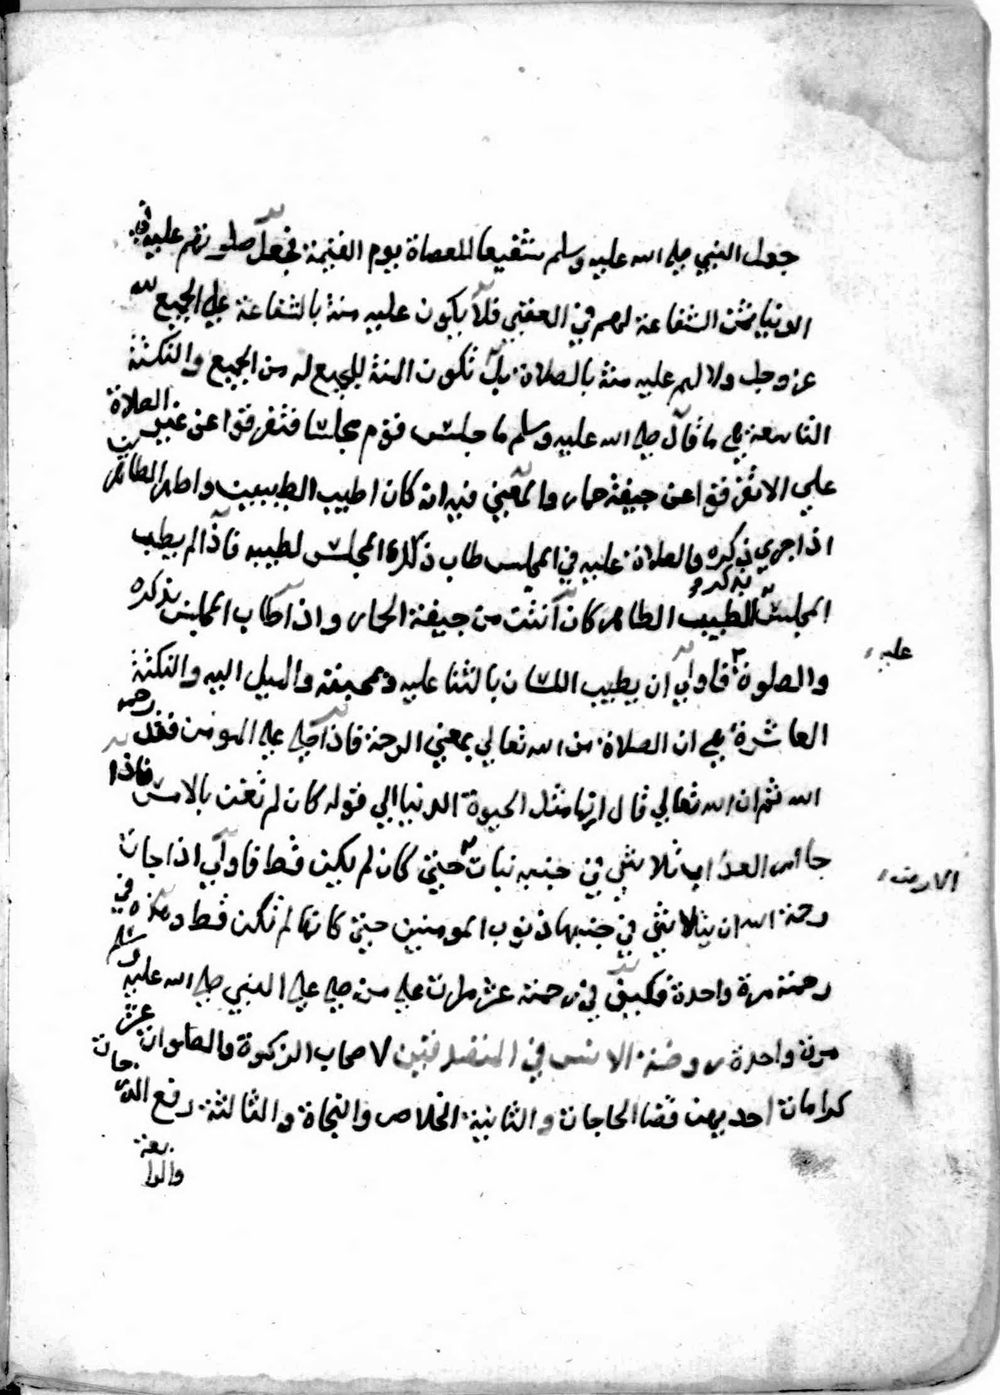 جعل النبي صلى الله عليه وسلم شفيعا للعصاة يوم القيمة فجعل صلوتهم عليه في
الدنيا بثمن الشفاعة لهم في العقبى فلا يكون عليه منة بالشفاعة علي الجميع لله
عز وجل ولا لهم عليه منة بالصلاة بل تكون المنة للجميع له من الجميع والنكتة
التاسعة هي ما قال صلى الله عليه وسلم ما جلس قوم مجلسا فتفرقوا عن غير الصلاة
علي الا تفرقوا عن جيفة حمار والمعني فيه انه كان اطيب الطيبين واطهر الطاهرين
اذا جري ذكره والصلاة عليه في المجلس طاب ذلك المجلس لطيبه فاذا لم يطب
المجلس بذكر الطيب الطاهر كان انتن من جيفة الحمار واذا طاب المجلس بذكره
والصلوة عليه فاولي ان يطيب اللسان بالثنا عليه ومحبته والميل اليه والنكتة
العاشرة هي ان الصلاة من الله تعالي بمعني الرحمة فاذا صلى على المومن فقد رحمه
الله ثم ان الله تعالي قال انما مثل الحيوة الدنيا الي قوله كان لم تغن بالامس فاذا
جا امر العذاب تلاشي في جنبه نبات الارض حتي كان لم يكن قط فاولي اذا جات
رحمة الله ان يتلاشي في جنبها ذنوب المومنين حتي كانها لم تكن قط وهذه في
رحمة مرة واحدة فكيف في رحمة عشر مرات على من صلى على النبي صلى الله عليه وسلم
مرة واحدة روضة الانس في المتصدقين لاصحاب الزكوة والصلوات عشر
كرامات احديهن قضا الحاجات والثانية الخلاص والنجاة والثالثة رفع الدرجات
والرابعة